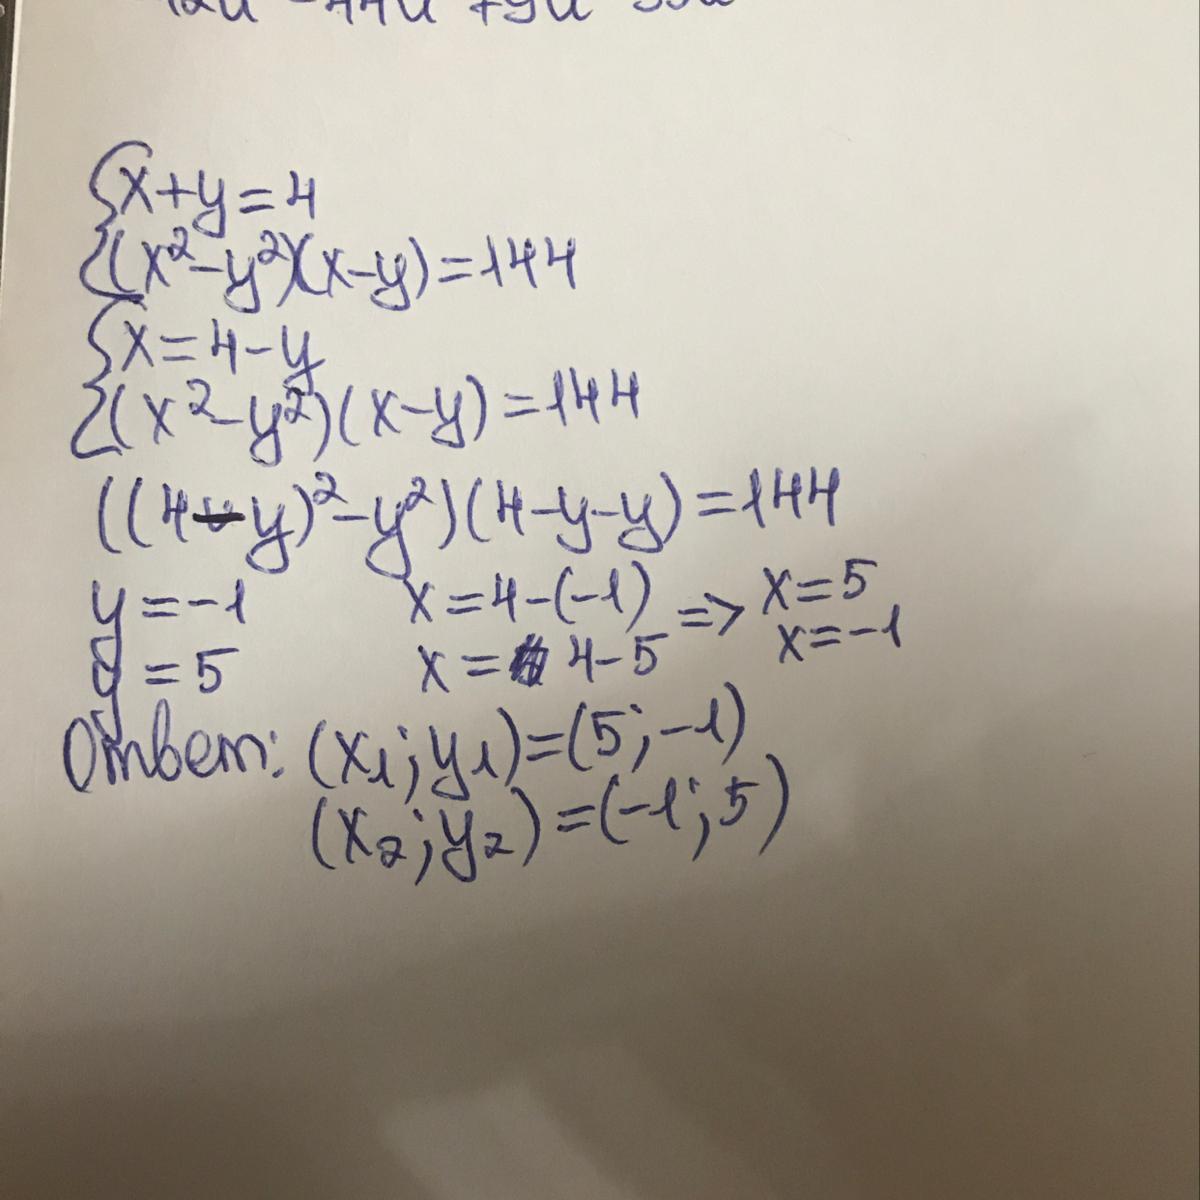 x+y=4
(x²-y²)(x-y)=144
x=4-y
(x²-y²)(x-y)=144
((4-y)²-y²)(4-y-y)=144
y=-1 x=4-(-1) => x=5
y=5 x= 4-5 x=-1
Ответ: (x₁;y₁)=(5;-1)
(x₂;y₂)=(-1;5)